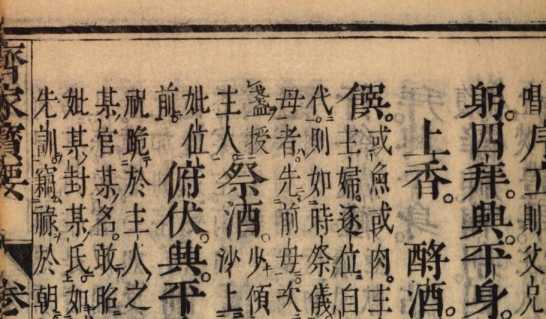 唱序立則父兄
躬。四拜。興。平身。
上香。酹酒。
饌。或魚或肉。主
主婦逐位白
代則如時祭儀
母者。先前母。次
盞。授
主人。祭酒。少傾
沙上
妣位
前。俯伏。興。平
祝跪於主人之
某官某名。敢昭
妣某封某氏。如
先訓。竊祿於朝
齊家寶要 卷